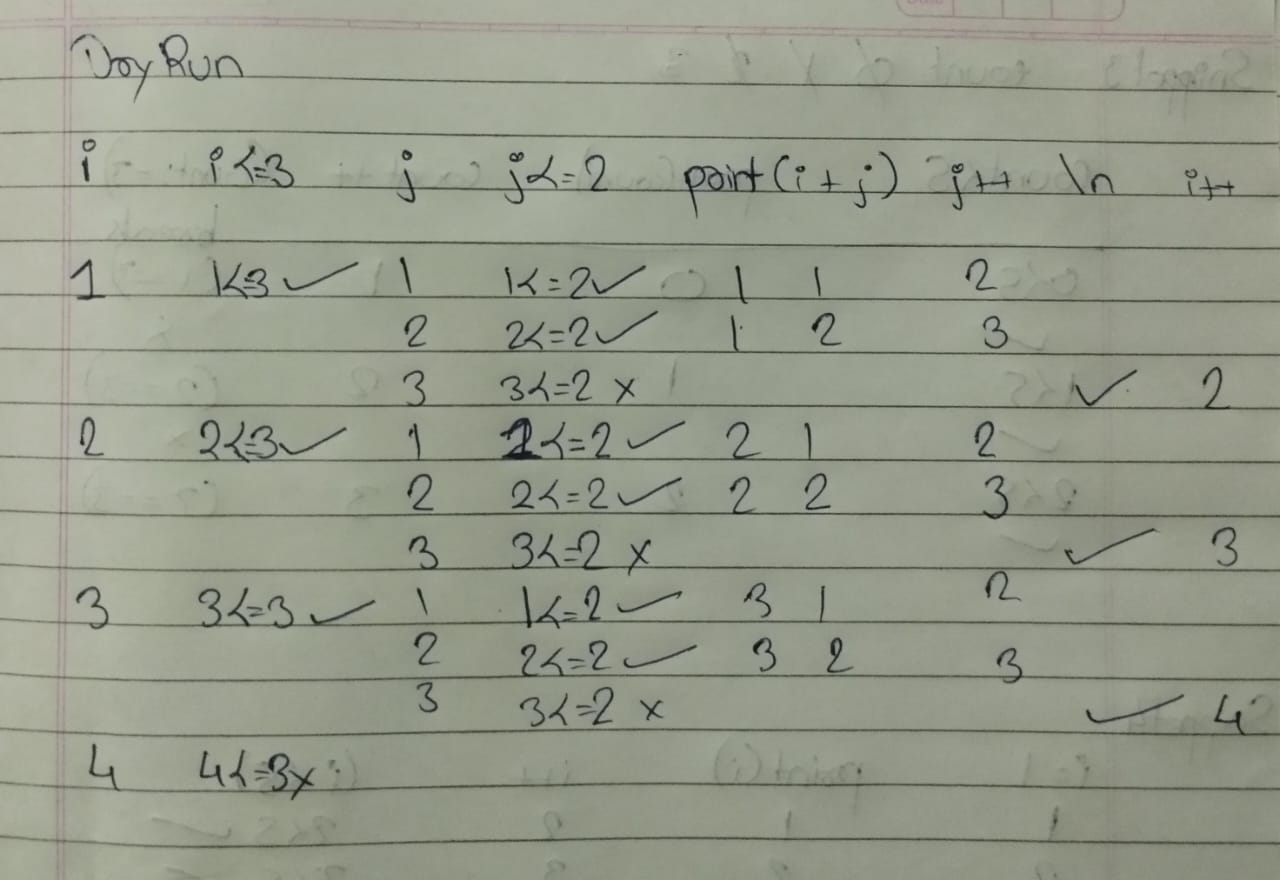 Dry Run
i i<=3 j j<=2 print(i+j) j++ \n i++
1 1<=3 ✓ 1 1<=2 ✓ 1 1 2
2 2<=2 ✓ 1 2 3
3 3<=2 x ✓ 2
2 2<=3 ✓ 1 1<=2 ✓ 2 1 2
2 2<=2 ✓ 2 2 3
3 3<=2 x ✓ 3
3 3<=3 ✓ 1 1<=2 ✓ 3 1 2
2 2<=2 ✓ 3 2 3
3 3<=2 x ✓ 4
4 4<=3 x